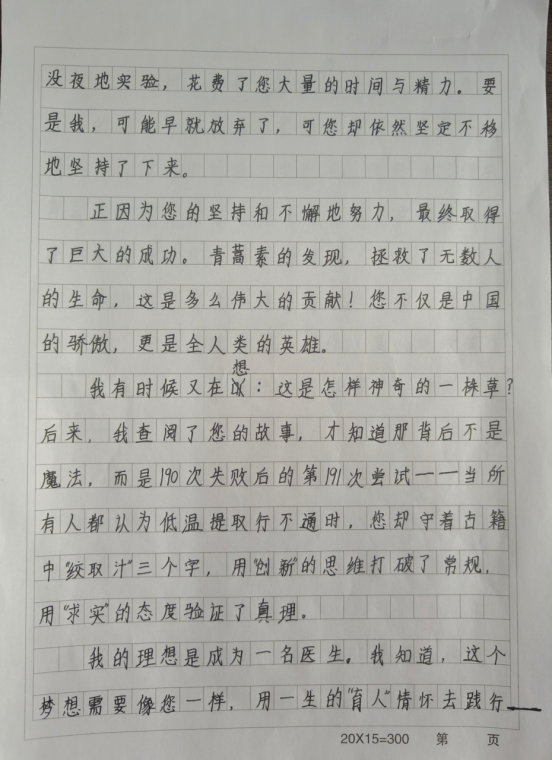 没夜地实验，花费了您大量的时间与精力。要
是我，可能早就放弃了，可您却依然坚定不移
地坚持了下来。
正因为您的坚持和不懈地努力，最终取得
了巨大的成功。青蒿素的发现，拯救了无数人
的生命，这是多么伟大的贡献！您不仅是中国
的骄傲，更是全人类的英雄。
我有时候又在想：这是怎样神奇的一株草？
后来，我查阅了您的故事，才知道那背后不是
魔法，而是190次失败后的第191次尝试——当所
有人都认为低温提取行不通时，您却守着古籍
中“绞取汁”三个字，用“创新”的思维打破了常规，
用“求实”的态度验证了真理。
我的理想是成为一名医生。我知道，这个
梦想需要像您一样，用一生的“育人”情怀去践行——
20X15=300 第 页